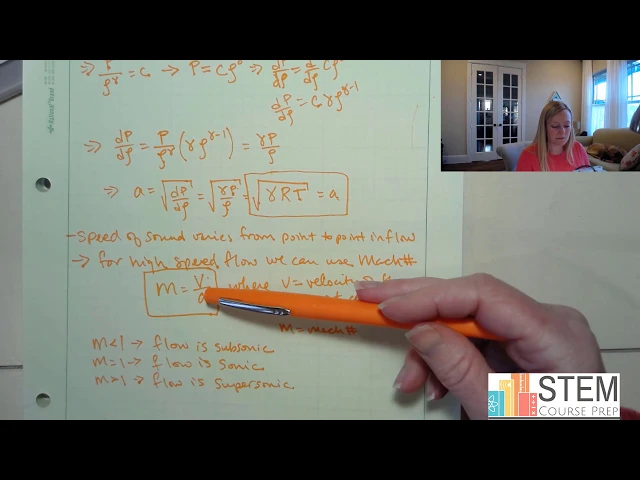 ⇒ P/ρ^γ = C₀ → P = Cρ^γ ⇒ dP/dρ = d/dρ Cρ^γ
dP/dρ = Cγρ^γ-1
⇒ dP/dρ = P/ρ^γ (γρ^γ-1) = γP/ρ
⇒ a = √dP/dρ = √γP/ρ = √γRT = a
- Speed of sound varies from point to point in flow
→ for high speed flow we can use Mach#
M = V/a where V = velocity
M = Mach#
M<1 → flow is subsonic
M=1 → flow is sonic
M>1 → flow is supersonic
STEM
COURSE PREP